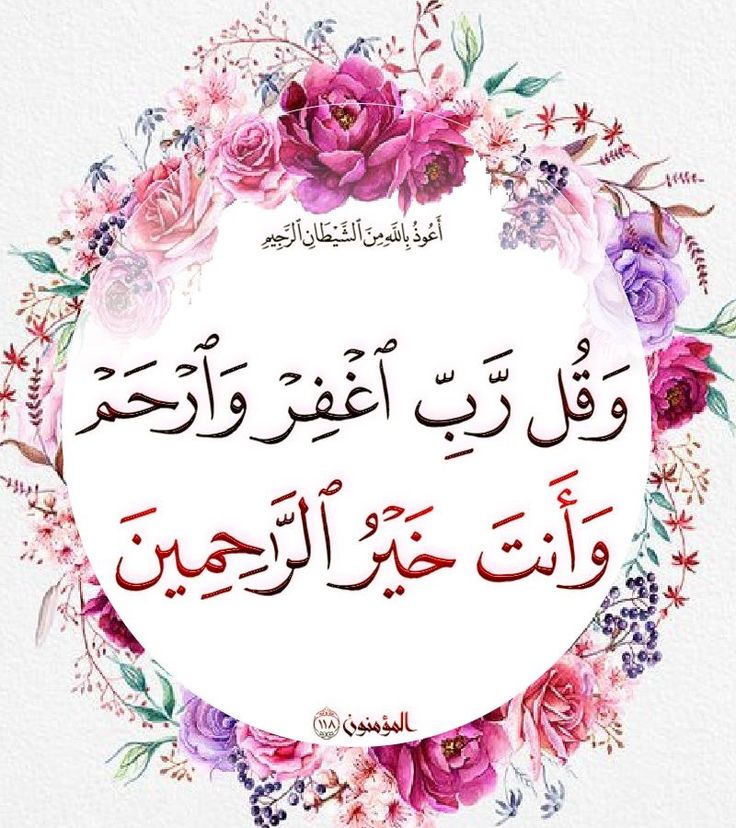 أَعُوذُ بِاللَّهِ مِنَ ٱلشَّيْطَانِ ٱلرَّجِيمِ
وَقُل رَّبِّ ٱغْفِرْ وَٱرْحَمْ
وَأَنتَ خَيْرُ ٱلرَّاحِمِينَ
المؤمنون ١١٨